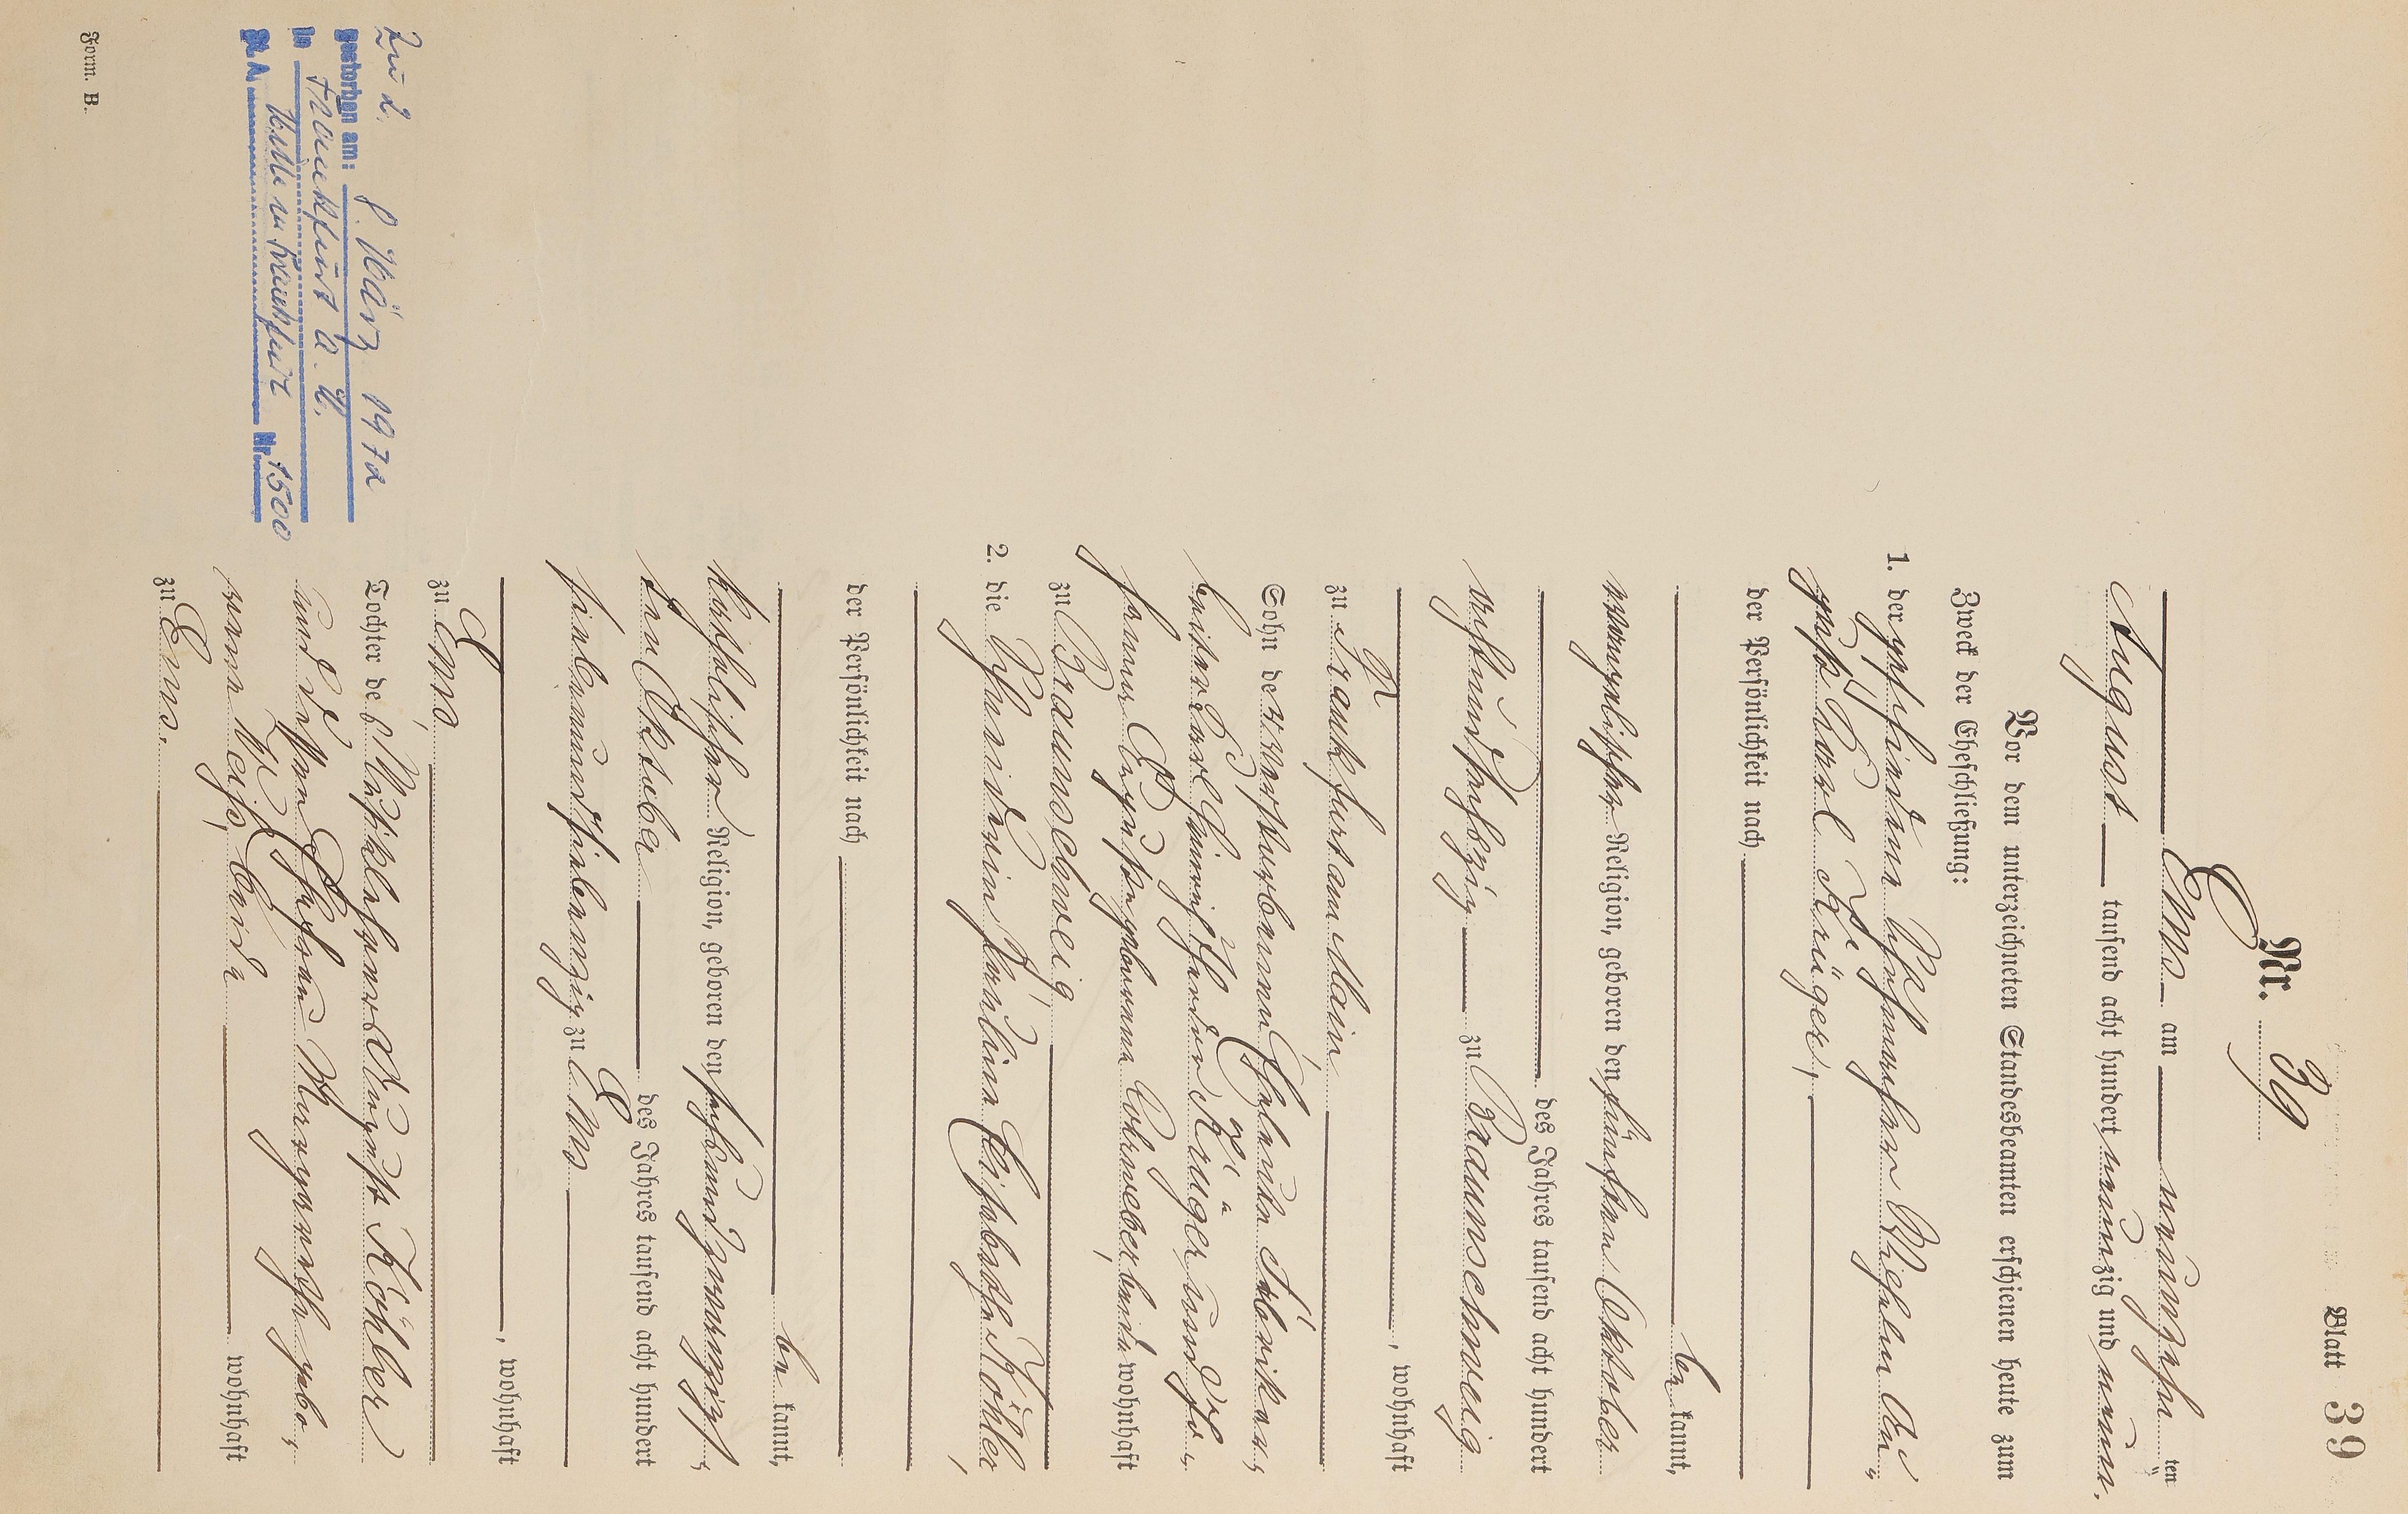 Blatt 39
Nr. 39
Ems am neunzehn ten
August tausend acht hundert neunzig und neun.
Vor dem unterzeichneten Standesbeamten erschienen heute zum
Zweck der Eheschließung:
1. der geschiedene Uhrmacher Wilhelm Au-
gust Carl Krüger,
der Persönlichkeit nach
be kannt,
evangelischer Religion, geboren den fünften Oktober
des Jahres tausend acht hundert
achtundsechzig zu Braunschweig
, wohnhaft
zu Frankfurt am Main
Sohn de
Carl Heinrich Krüger und
geborene Bohnweber beide wohnhaft
zu Braunschweig
2. die Schneiderin Pauline Elisabethe Köhler,
der Persönlichkeit nach
be kannt,
katholischer Religion, geboren den sechsundzwanzigs-
ten Oktober des Jahres tausend acht hundert
siebenundsiebenzig zu Ems
, wohnhaft
zu Ems,
Tochter des Musiklehrers August Köhler
und dessen Ehefrau Margarethe gebo-
rene Weiß, beide wohnhaft
zu Ems.
Zu 2.
gestorben am: 8. März 1972
in Frankfurt a. M.
St. A. Mitte in Frankfurt Nr. 1500
Form. B.